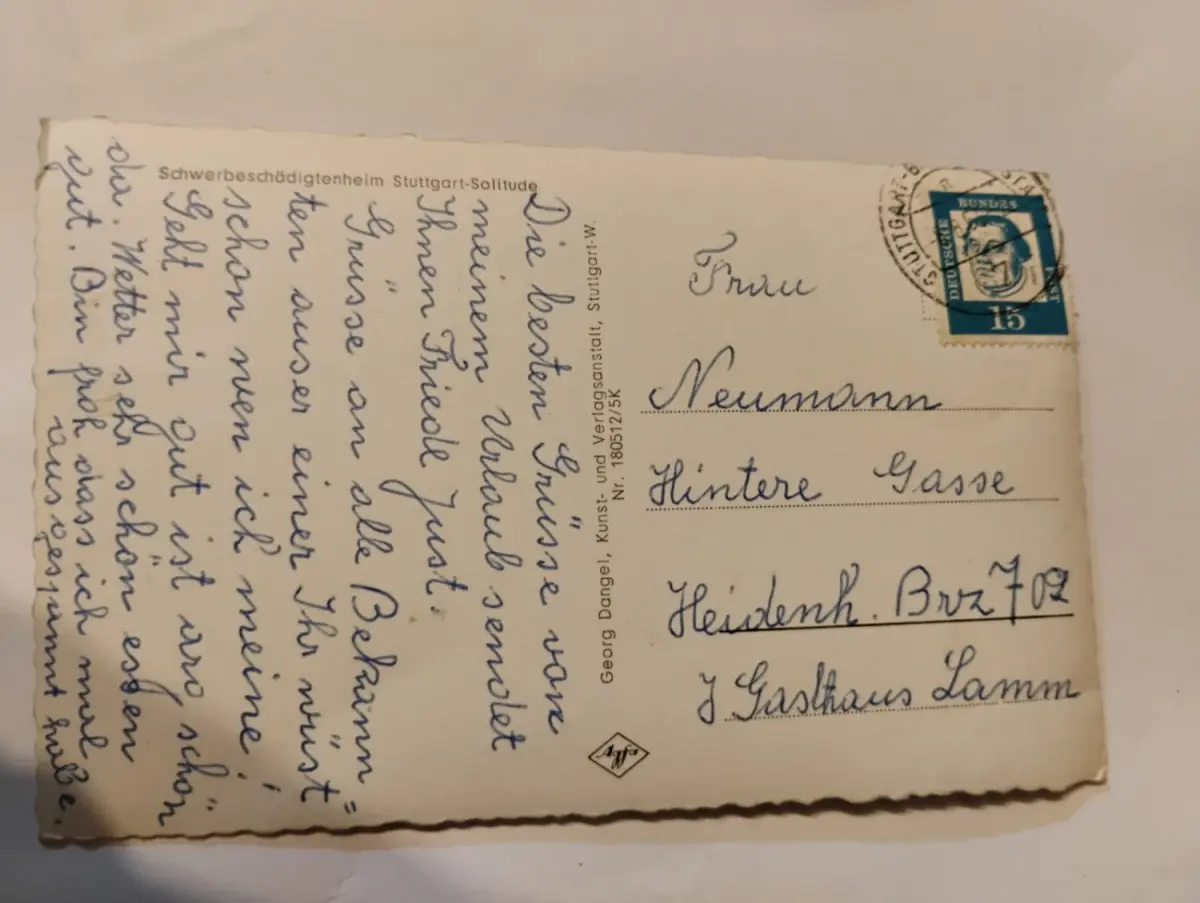 Schwerbeschädigtenheim Stuttgart-Solitude
Die besten Grüsse von
meinem Urlaub sendet
Ihnen Friede Just.
Grüsse an alle Bekann=
ten auser einer Ihr wüst
schon wen ich meine!
Geht mir gut ist schön
da. Wetter sehr schön essen
gut. Bin froh dass ich mal
ausgespannt habe.
Georg Dangel, Kunst- und Verlagsanstalt, Stuttgart-W.
Nr. 180512/5K
Agfa
STUTTGART
DEUTSCHE
BUNDES
POST
15
Frau
Neumann
Hintere Gasse
Heidenh. Brz 702
J Gasthaus Lamm